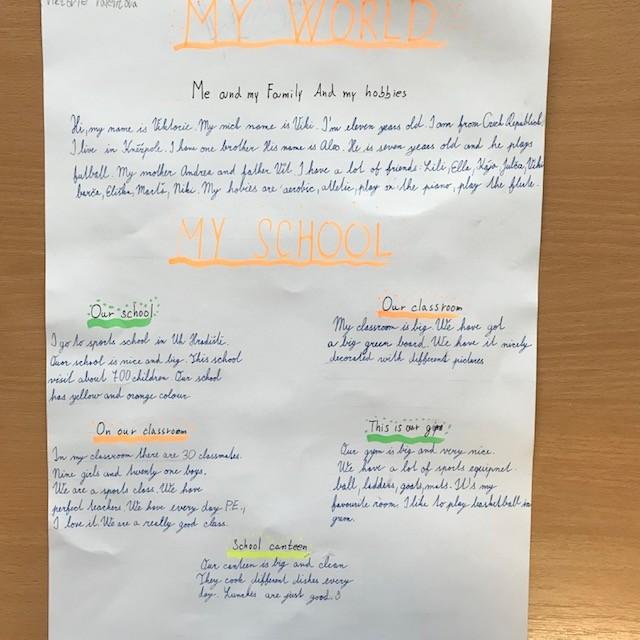 MY WORLD
Me and my Family And my hobbies
Hi, my name is Viktorie. My nick name is Viki. I'm eleven years old. I am from Czech Republick,
I live in Kněžpole. I have one brother His name is Alex. He is seven years old and he plays
futball. My mother Andrea and father Vít. I have a lot of friends: Lili, Elle, Kája, Julča,
barča, Eliška, Martí, Niki. My hobies are aerobic, atletic, play on the piano, play the flute.
MY SCHOOL
Our school
I go to sports school in Uh Hradiště.
Our school is nice and big. This school
visit about 700 children Our school
has yellow and orange colour
Our classroom
My classroom is big. We have got
a big green board. We have it nicely
decorated with different pictures
On our classroom
In my classroom there are 30 classmates.
Nine girls and twenty one boys.
We are a sports class. We have
perfect teachers. We have every day P.E.,
I love it. We are a really good class.
This is our gym
Our gym is big and very nice.
We have a lot of sports equipnet.
ball, ladders, goals, mats. It's my
favourite room. I like to play basketball in
grem.
School canteen
Our canteen is big and clean
They cook different dishes every
day. Lunches are just good. :)